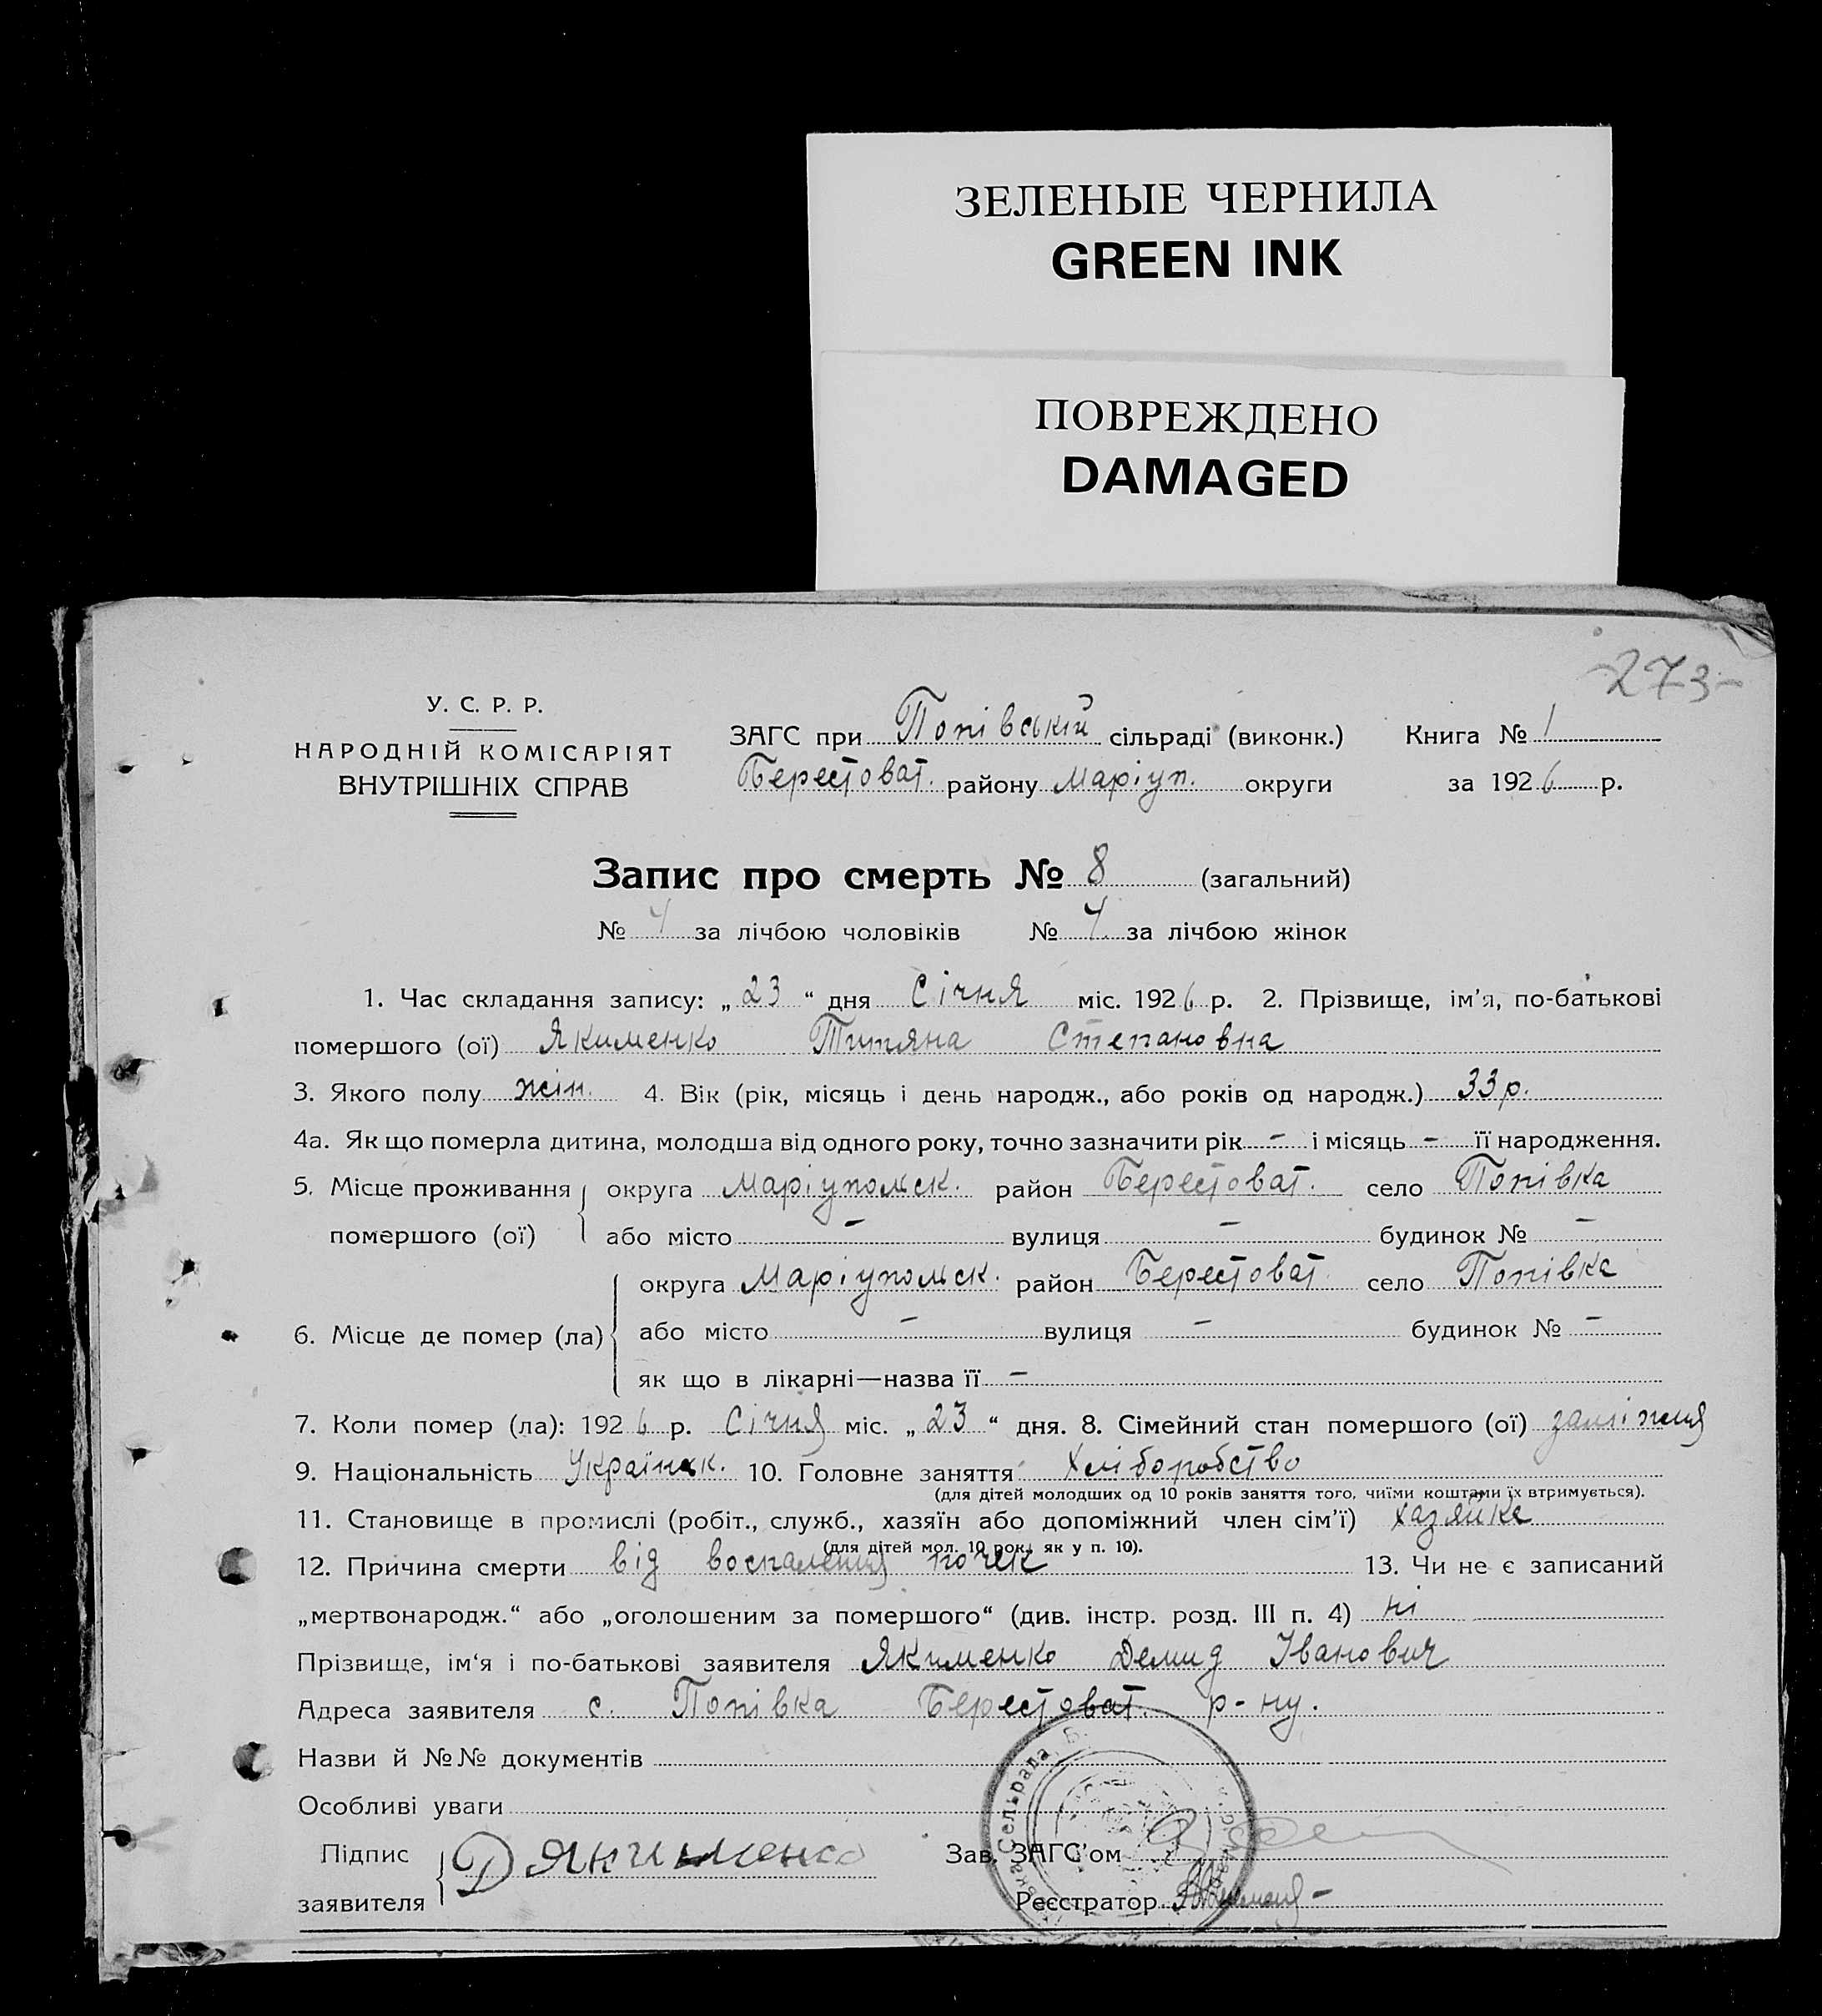 ЗЕЛЕНЫЕ ЧЕРНИЛА
GREEN INK
ПОВРЕЖДЕНО
DAMAGED
-273-
У. С. Р. Р.
НАРОДНІЙ КОМІСАРІЯТ
ВНУТРІШНІХ СПРАВ
ЗАГС при Попівській сільраді (виконк.) Книга № 1
Берестоват. району Маріуп. округи за 1926 р.
Запис про смерть № 8 (загальний)
№ 4 за лічбою чоловіків № 4 за лічбою жінок
1. Час складання запису: „23“ дня Січня міс. 1926 р. 2. Прізвище, ім'я, по-батькові
помершого (ої) Якименко Титяна Степановна
3. Якого полу жін. 4. Вік (рік, місяць і день народж., або років од народж.) 33 р.
4а. Як що померла дитина, молодша від одного року, точно зазначити рік - і місяць - її народження.
5. Місце проживання округа Маріупольск. район Берестоват. село Попівка
помершого (ої) або місто - вулиця - будинок № -
округа Маріупольск. район Берестоват. село Попівка
6. Місце де помер (ла) або місто - вулиця - будинок № -
як що в лікарні—назва її -
7. Коли помер (ла): 1926 р. Січня міс. „23“ дня. 8. Сімейний стан помершого (ої) заміжня
9. Національність Українк. 10. Головне заняття Хліборобство
(для дітей молодших од 10 років заняття того, чиїми коштами їх втримується).
11. Становище в промислі (робіт., служб., хазяїн або допоміжний член сім'ї) хазяйка
(для дітей мол. 10 рок. як у п. 10).
12. Причина смерти від воспаления почек 13. Чи не є записаний
„мертвонародж.“ або „оголошеним за помершого“ (див. інстр. розд. III п. 4) ні
Прізвище, ім'я і по-батькові заявителя Якименко Демид Іванович
Адреса заявителя с. Попівка Берестоват. р-ну.
Назви й №№ документів
Особливі уваги
Підпис Д Якименко Зав. ЗАГС'ом
заявителя Реєстратор
Сельрада